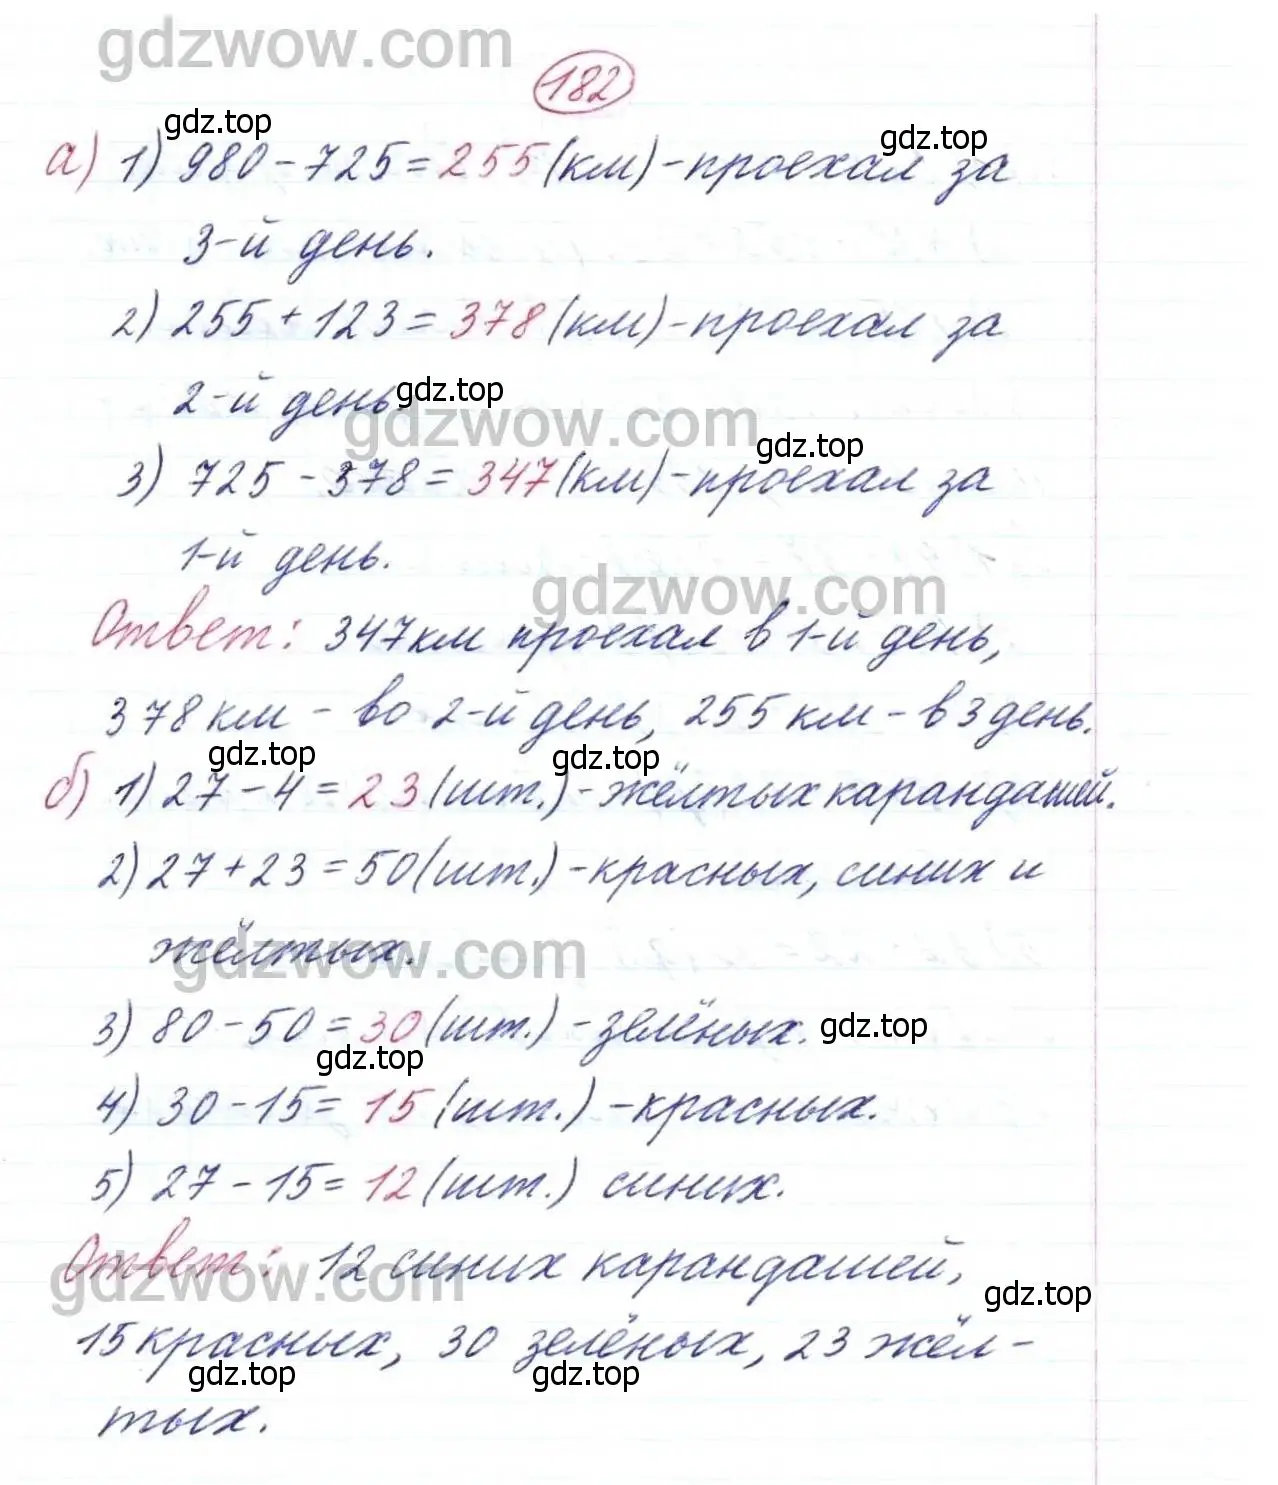 gdzwow.com
182
gdz.top gdz.top
а) 1) 980 - 725 = 255 (км) - проехал за
3-й день.
2) 255 + 123 = 378 (км) - проехал за
2-й день. gdz.top
gdzwow.com gdz.top
3) 725 - 378 = 347 (км) - проехал за
1-й день.
gdzwow.com
Ответ: 347 км проехал в 1-й день,
378 км - во 2-й день, 255 км - в 3 день.
gdz.top gdz.top
б) 1) 27 - 4 = 23 (шт.) - жёлтых карандашей.
2) 27 + 23 = 50 (шт.) - красных, синих и
жёлтых.
gdzwow.com
3) 80 - 50 = 30 (шт.) - зелёных. gdz.top
gdz.top
4) 30 - 15 = 15 (шт.) - красных.
5) 27 - 15 = 12 (шт.) синих.
Ответ: 12 синих карандашей,
gdzwow.com gdz.top
15 красных, 30 зелёных, 23 жёл-
gdz.top gdz.top
тых.